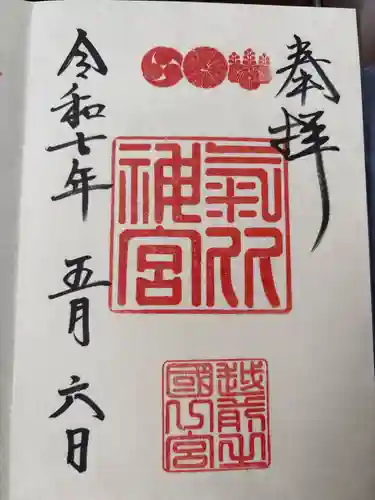 奉拝
氣比
神宮
越前之
國一宮
令和七年 五月 六日